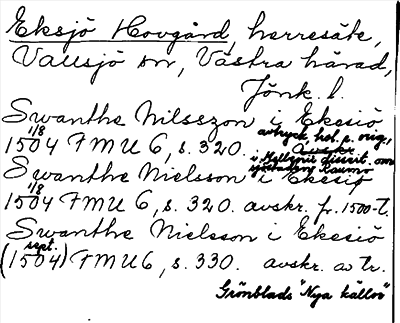 Eksjö Hovgård, herresäte,
Vallsjö sn, Västra härad,
Jönk. l.
Swanthe Nilsszon i Ekesiö
1/8 avtryck hol. e. orig.,
1504 FMU 6, s. 320. Avskr.
i Hellenii dissert. om
Swanthe Nielsson i Ekesiö
1/8
1504 FMU 6, s. 320. avskr. fr. 1500-t.
Swanthe Nielsson i Ekesiö
sept.
(1504) FMU 6, s. 330. avskr. av tr.
Grönblads "Nya källor"